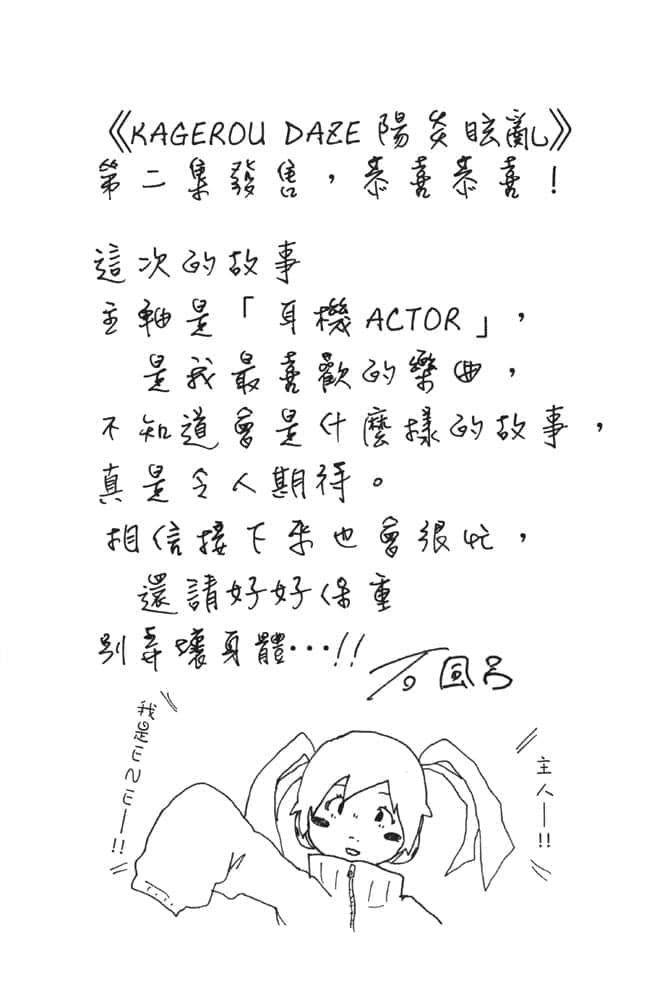 《KAGEROU DAZE 陽炎眩亂》
第二集發售，恭喜恭喜！
這次的故事
主軸是「耳機ACTOR」，
是我最喜歡的樂曲，
不知道會是什麼樣的故事，
真是令人期待。
相信接下來也會很忙，
還請好好保重
別弄壞身體…!!
石風呂
我是ENE—!!
主人—!!